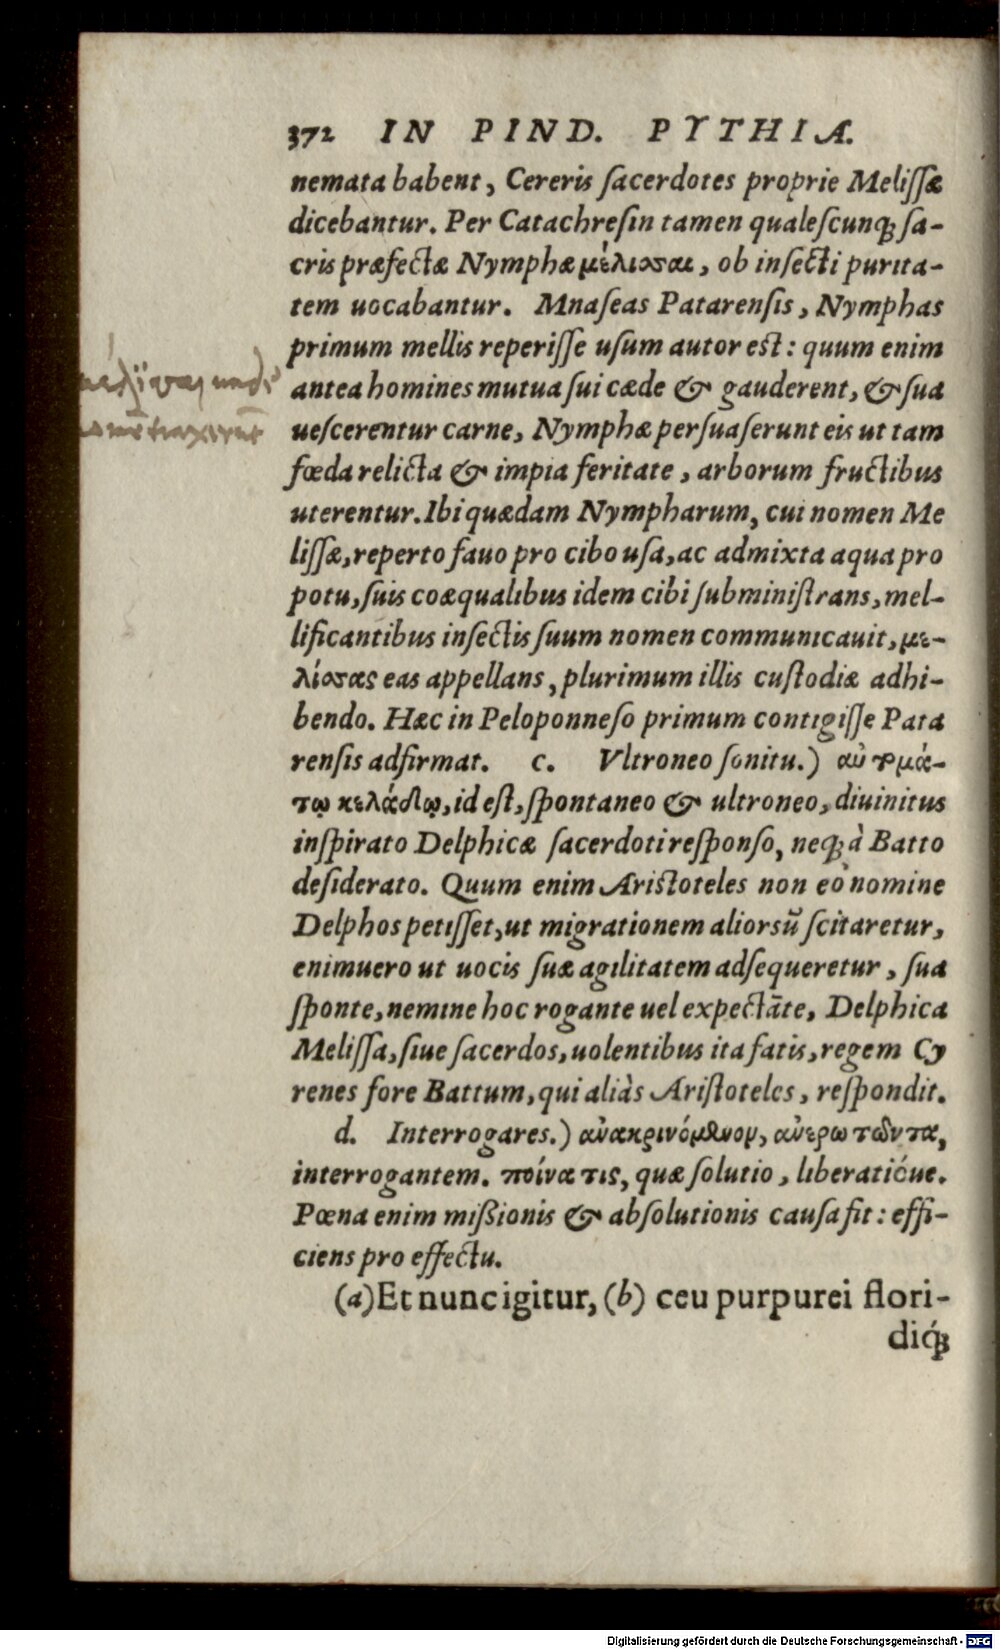 372 IN PIND. PYTHIA.
nemata habent, Cereris ſacerdotes proprie Meliſſæ
dicebantur. Per Catachreſin tamen qualeſcunq; ſa-
cris præfectæ Nymphæ μέλισσαι, ob inſecti purita-
tem uocabantur. Mnaſeas Patarenſis, Nymphas
primum mellis reperiſſe uſum autor est: quum enim
antea homines mutua ſui cæde & gauderent, & ſua
ueſcerentur carne, Nymphæ perſuaſerunt eis ut tam
fœda relicta & impia feritate, arborum fructibus
uterentur. Ibi quædam Nympharum, cui nomen Me
liſſæ, reperto fauo pro cibo uſa, ac admixta aqua pro
potu, ſuis coæqualibus idem cibi ſubminiſtrans, mel-
lificantibus inſectis ſuum nomen communicauit, με-
λίσσας eas appellans, plurimum illis cuſtodiæ adhi-
bendo. Hæc in Peloponneſo primum contigiſſe Pata
renſis adfirmat. c. Vltroneo ſonitu.) αὐτομά-
τῳ κελάδῳ, id eſt, ſpontaneo & ultroneo, diuinitus
inſpirato Delphicæ ſacerdoti reſponſo, neq; à Batto
deſiderato. Quum enim Ariſtoteles non eò nomine
Delphos petiſſet, ut migrationem aliorsũ ſcitaretur,
enimuero ut uocis ſuæ agilitatem adſequeretur, ſua
ſponte, nemine hoc rogante uel expectāte, Delphica
Meliſſa, ſiue ſacerdos, uolentibus ita fatis, regem Cy
renes fore Battum, qui aliàs Ariſtoteles, reſpondit.
d. Interrogares.) ἀνακρινόμενον, ἀνερωτῶντα,
interrogantem. ποίνα τις, quæ ſolutio, liberatióue.
Pœna enim miſsionis & abſolutionis cauſa fit: effi-
ciens pro effectu.
(a) Et nunc igitur, (b) ceu purpurei flori-
diq́;
Digitalisierung gefördert durch die Deutsche Forschungsgemeinschaft - DFG